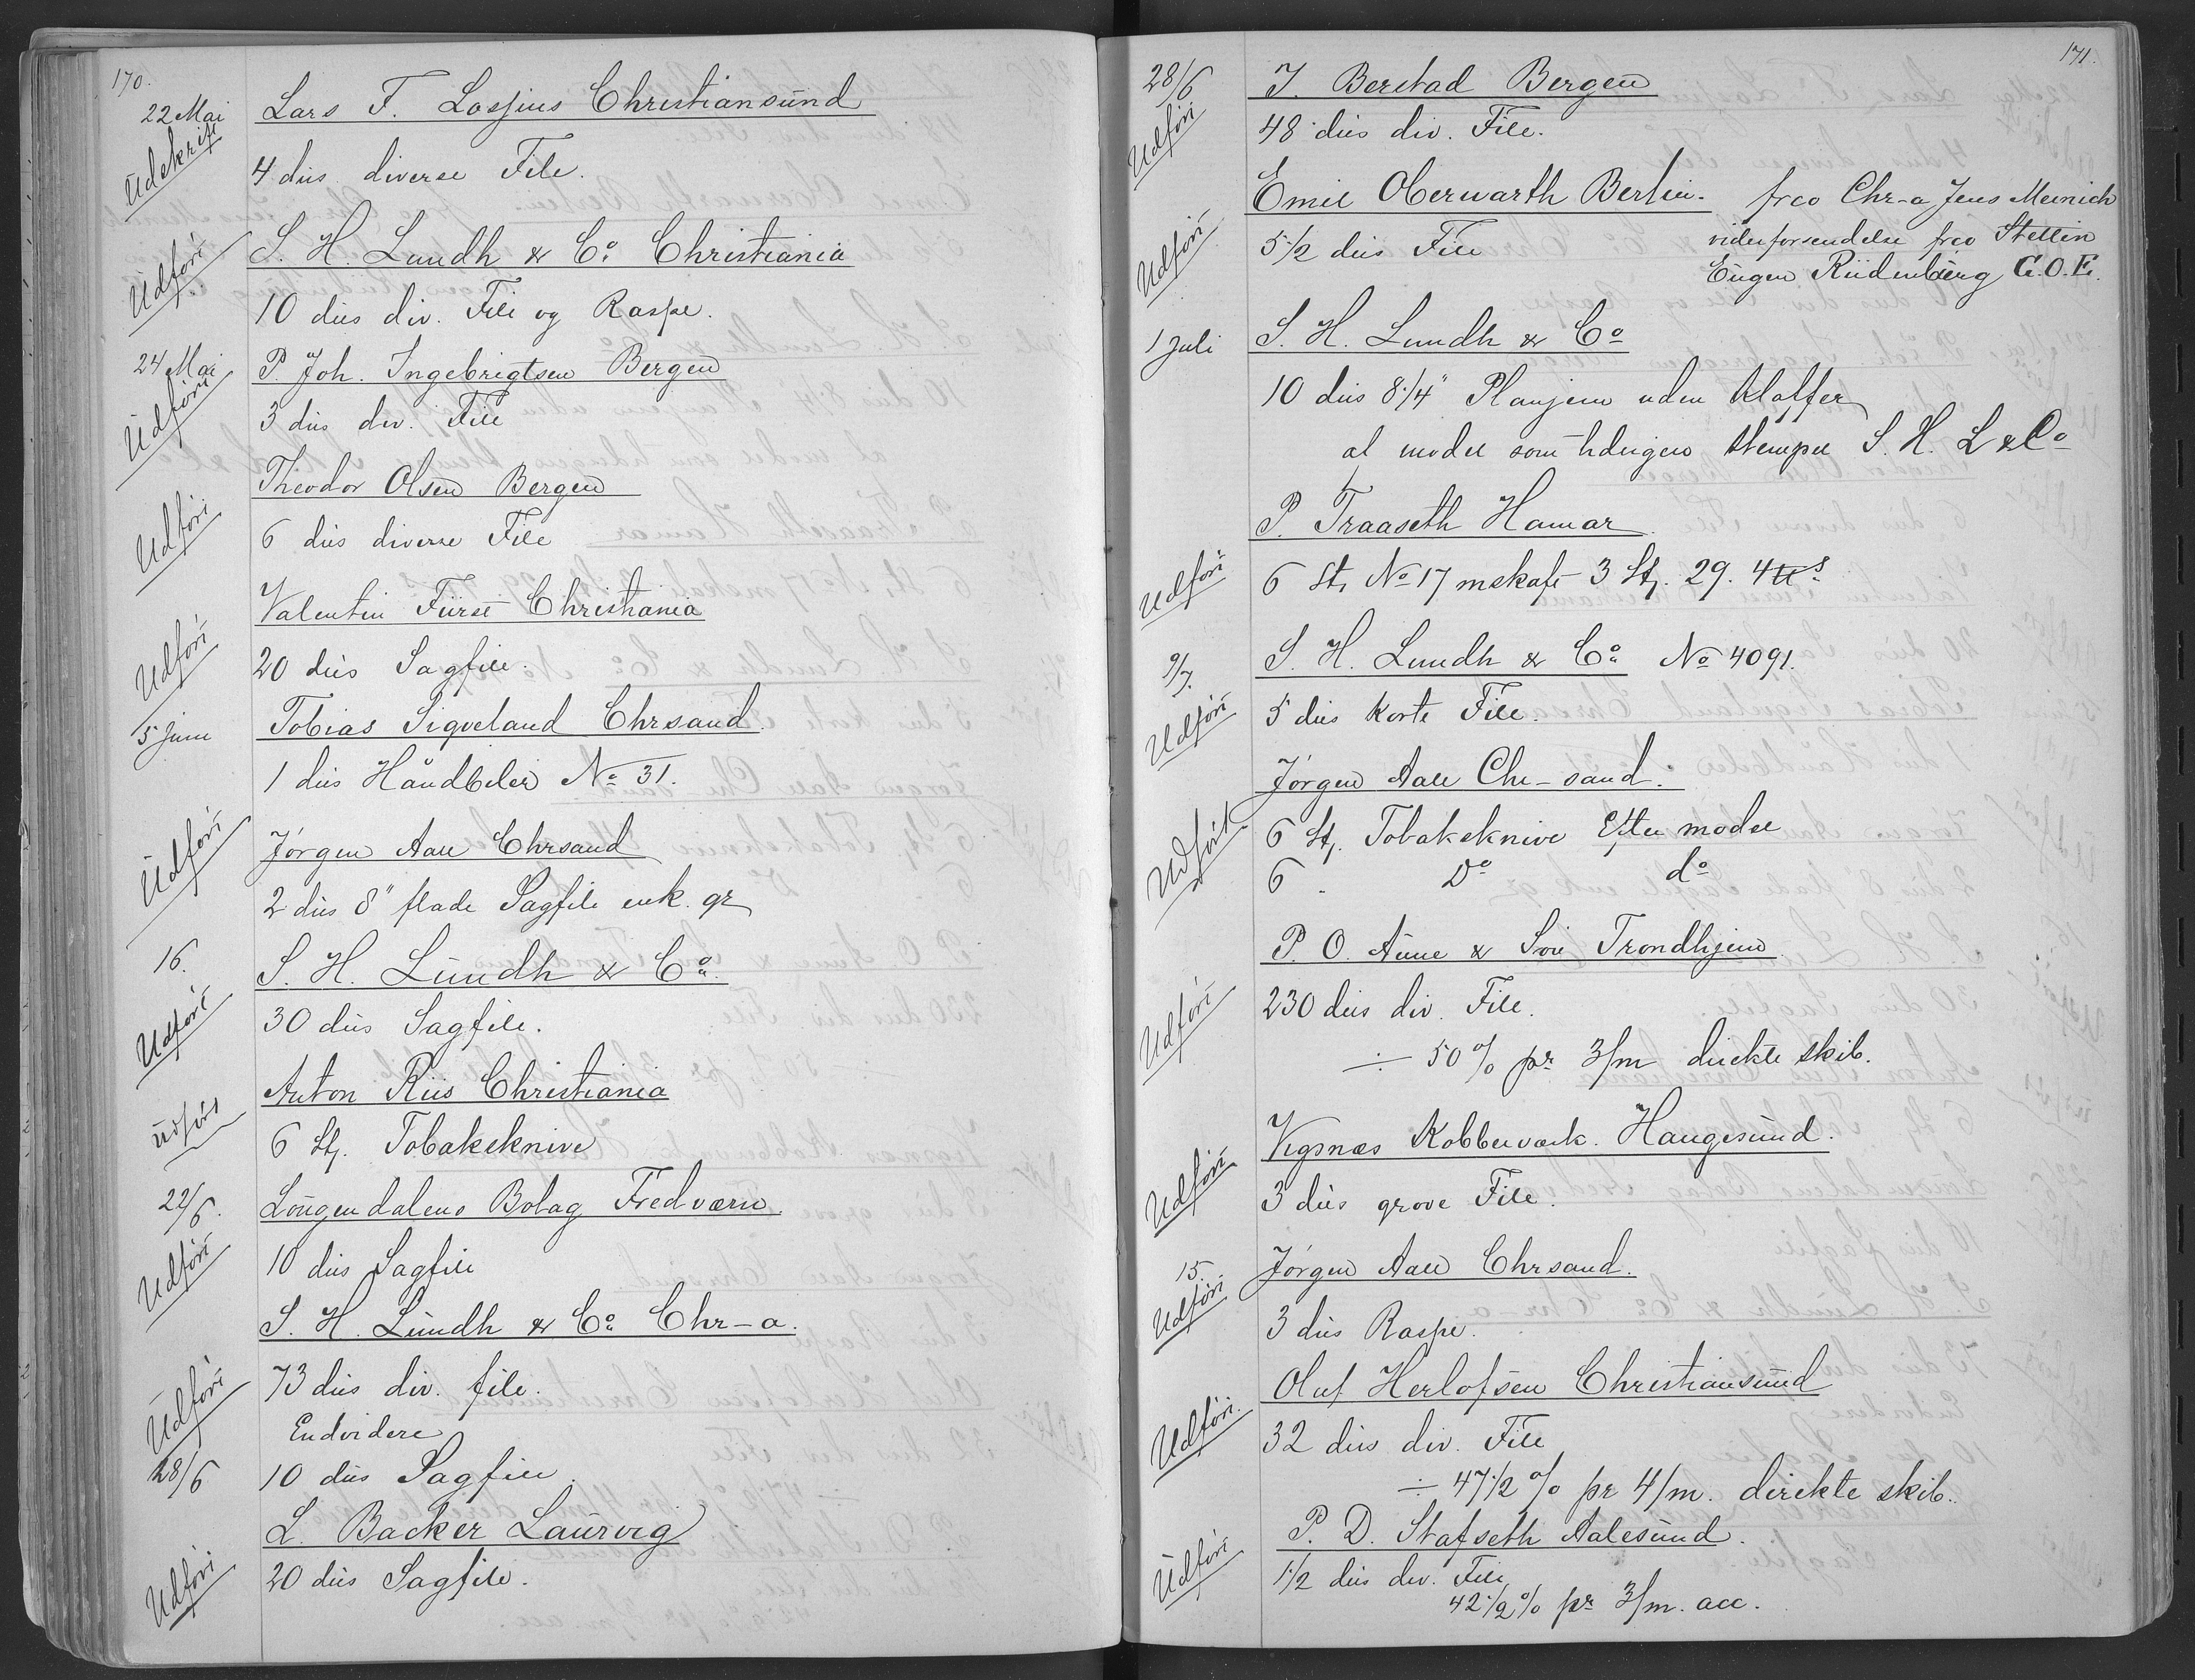 170.
22 Mai Lars F. Lossius Christiansund
Udskrift
4 dus diverse File.
S. H. Lundh & Co Christiania
Udført
10 dus div. File og Raspe.
24 Mai P. Joh. Ingebrigtsen Bergen
Udført
3 dus div. File
Theodor Olsen Bergen
Udført
6 dus diverse File
Valentin Fürst Christiania
Udført
20 dus Sagfile.
5 Juni Tobias Sigveland Chrsand
1 dus Håndbiler No 31.
Udført
Jörgen Aall Chrsand
2 dus 8" flade Sagfile enk. gr
16. S. H. Lundh & Co.
Udført
30 dus Sagfile.
Anton Riis Christiania
Udført
6 St. Tobaksknive
22/6. Lougendalens Bolag Fredværn.
Udført
10 dus Sagfile
S. H. Lundh & Co Chr-a.
Udført
73 dus div. file.
Endvidere
28/6 10 dus Sagfile.
L. Backer Laurvig
Udført
20 dus Sagfile.
171.
28/6 J. Berstad Bergen
Udført
48 dus div. File.
Emil Oberwarth Berlin. frco Chr-a Jens Meinich
Udført
5 1/2 dus File
videreforsendelse frco Stettin
Eugen Rüdenburg G.O.E.
1 Juli S. H. Lundh & Co
10 dus 8 1/4" Planjern uden Klaffer
af model som tidligere Stempel S. H. L & Co
P. Traaseth Hamar
Udført
6 St. No 17 m skaft 3 St. 29. 4 tt s
9/7. S. H. Lundh & Co No 4091.
Udført
5 dus Korte File.
Jörgen Aall Chr-sand.
Udført
6 St. Tobaksknive Efter model
6 . Do do
P. O. Aune & Søn Trondhjem
Udført
230 dus div. File.
÷ 50 % pr 3/m direkte skib.
Vigsnæs Kobberværk. Haugesund.
Udført
3 dus grove File.
15. Jörgen Aall Chrsand.
Udført
3 dus Raspe.
Oluf Herlofsen Christiansund
Udført.
32 dus div. File
÷ 47 1/2 % pr 4/m. direkte skib.
P. D. Stafseth Aalesund.
Udført
1 1/2 dus div. File
42 1/2 % pr 3/m. acc.